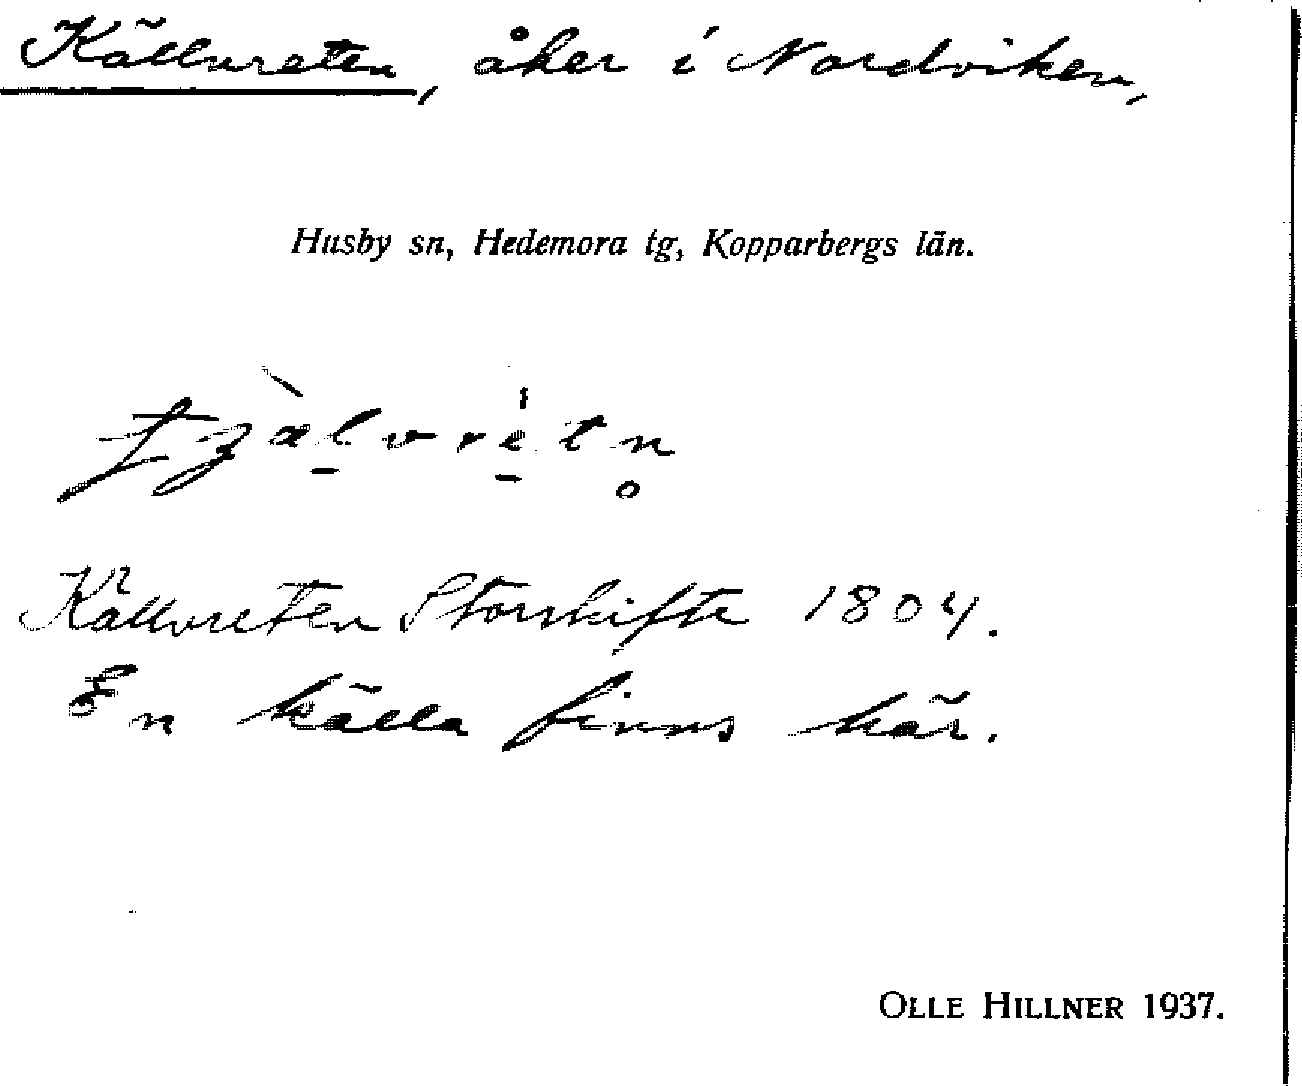 Källvreten, åker i Nordviken,
Husby sn, Hedemora tg, Kopparbergs län.
Källvreten Storskifte 1804.
En källa finns här.
OLLE HILLNER 1937.